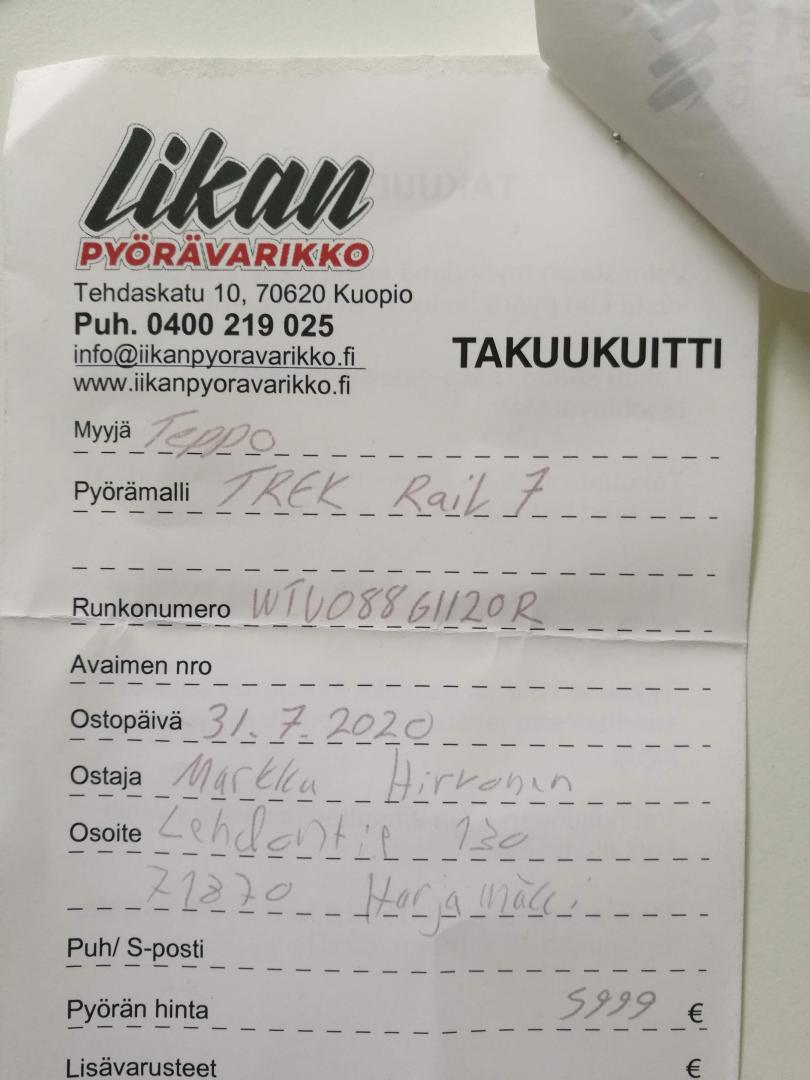 Iikan
PYÖRÄVARIKKO
Tehdaskatu 10, 70620 Kuopio
Puh. 0400 219 025
info@iikanpyoravarikko.fi
www.iikanpyoravarikko.fi
TAKUUKUITTI
Myyjä Teppo
Pyörämalli TREK Rail 7
Runkonumero WTU088G1120R
Avaimen nro
Ostopäivä 31.7.2020
Ostaja Markku Hirvonen
Osoite Lehdontie 130
71870 Harjamäki
Puh/ S-posti
Pyörän hinta 5999 €
Lisävarusteet €